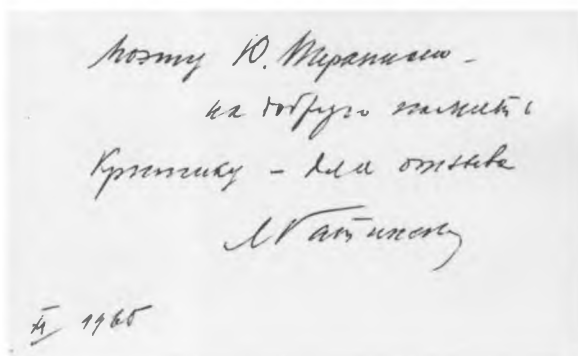 Поэту Ю. Терапиано –
на добрую память
Критику – для отзыва
XI 1965